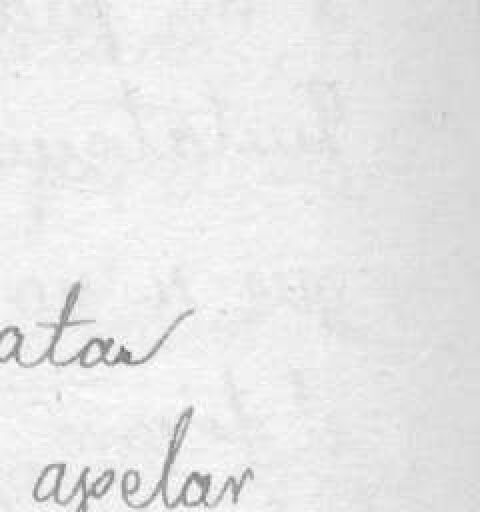 atar
apelar